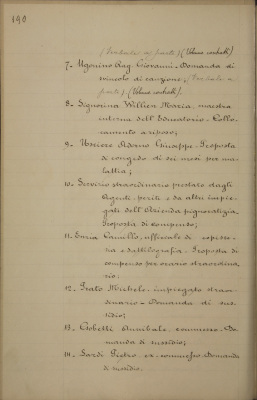 190
(Verbale a parte) (Volume verbali).
7- Ugonino Rag. Giovanni - Domanda di
svincolo di cauzione; (Verbale a
parte). (Volume verbali).
8- Signorina Willien Maria, maestra
interna dell'Educatorio - Collo-
camento a riposo;
9- Usciere Adorno Giuseppe - Proposta
di congedo di sei mesi per ma-
lattia;
10- Servizio straordinario prestato dagli
Agenti periti e da altri impie-
gati dell'Azienda pignoratizia.
Proposta di compenso;
11- Camillo, ufficiale di copiste-
ria e dattilografia - Proposta di
compenso per orario straordina-
rio;
12- Prato Michele - impiegato straor-
dinario - Domanda di sus-
sidio;
13- Gobetti Annibale - commesso - Do-
manda di sussidio;
14- Sardi Pietro - ex commesso - Domanda
di sussidio.